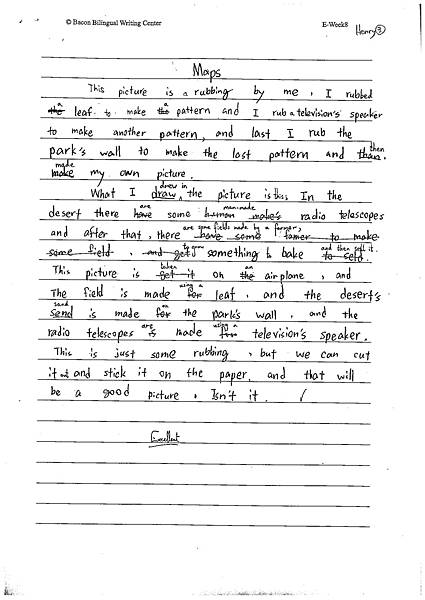 © Bacon Bilingual Writing Center
E-Week8
Henry ③
Maps
This picture is a rubbing by me, I rubbed
a a
the leaf to make the pattern and I rub a television's speaker
to make another pattern, and last I rub the
then
park's wall to make the last pattern and than.
made
make my own picture.
drew in
What I draw, the picture is this. In the
are manmade
desert there have some human makes radio telescopes
are some fields made by a farmer,
and after that, there have some famer to make
to grow and then sell it.
some field, and get something to bake to seld.
taken an
This picture is get it on the airplane, and
using a
The field is made for leaf, and the desert's
sand on
send is made for the park's wall, and the
are using a
radio telescopes is made for television's speaker.
This is just some rubbing, but we can cut
it out and stick it on the paper, and that will
be a good picture, Isn't it.
Excellent